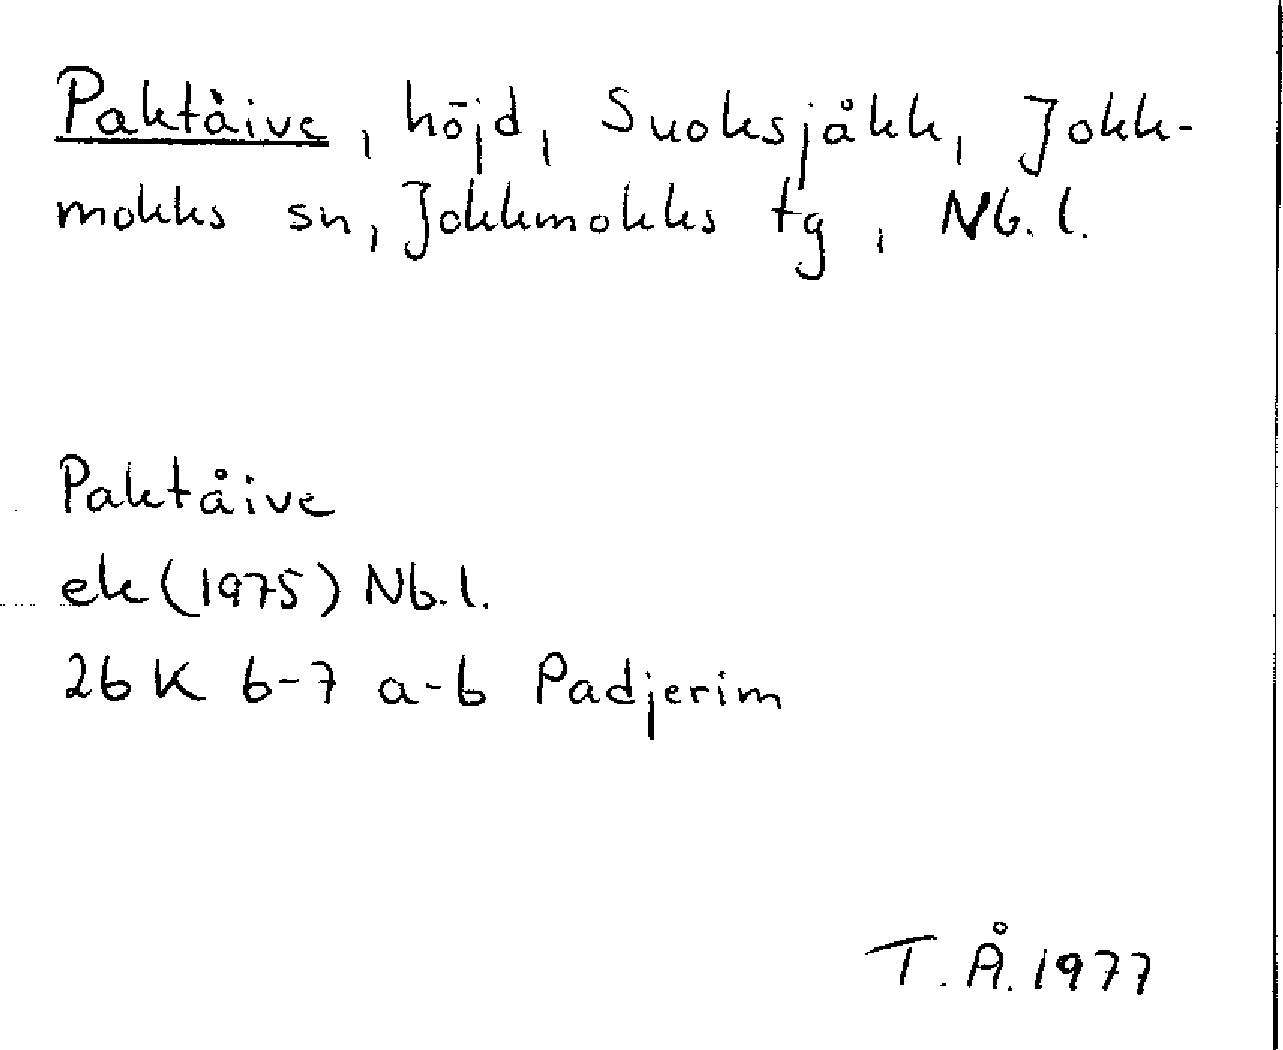 Paktåive, höjd, Suoksjåkk, Jokk-
mokks sn, Jokkmokks tg, Nb. l.
Paktåive
ek (1975) Nb.l.
26 K 6-7 a-b Padjerim
T. Å. 1977